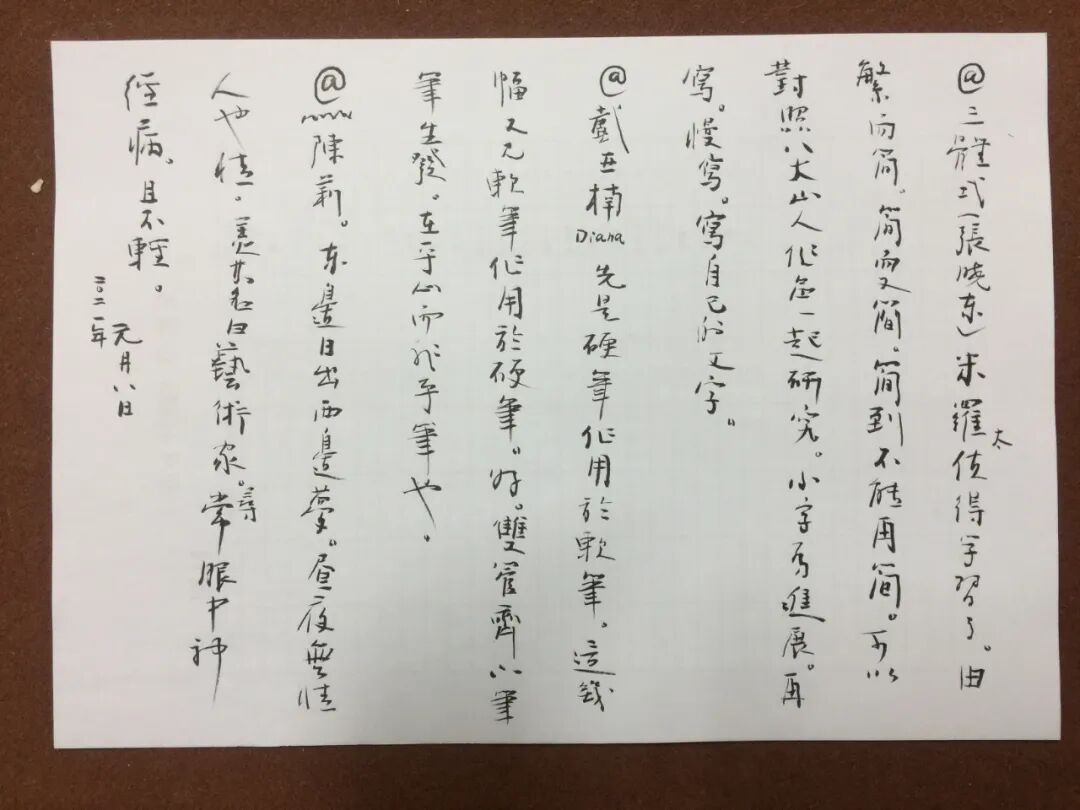 @三體式(張曉东)米羅太值得学習了。由
繁而简。简而又簡。简到不能再简。可以
對照八大山人作品一起研究。小字有進展。再
寫。慢寫。寫自己的文字。
@戴亚楠Diana先是硬筆作用於軟筆。這幾
幅又見軟筆作用於硬筆。好。雙管齊下筆
筆生發。在乎心而非乎筆也。
@nnnn陳莉。东邊日出西邊夢。昼夜無情
人也情。羡其名曰藝術家。尋常眼中神
经病。且不輕。
二〇二一年
元月八日